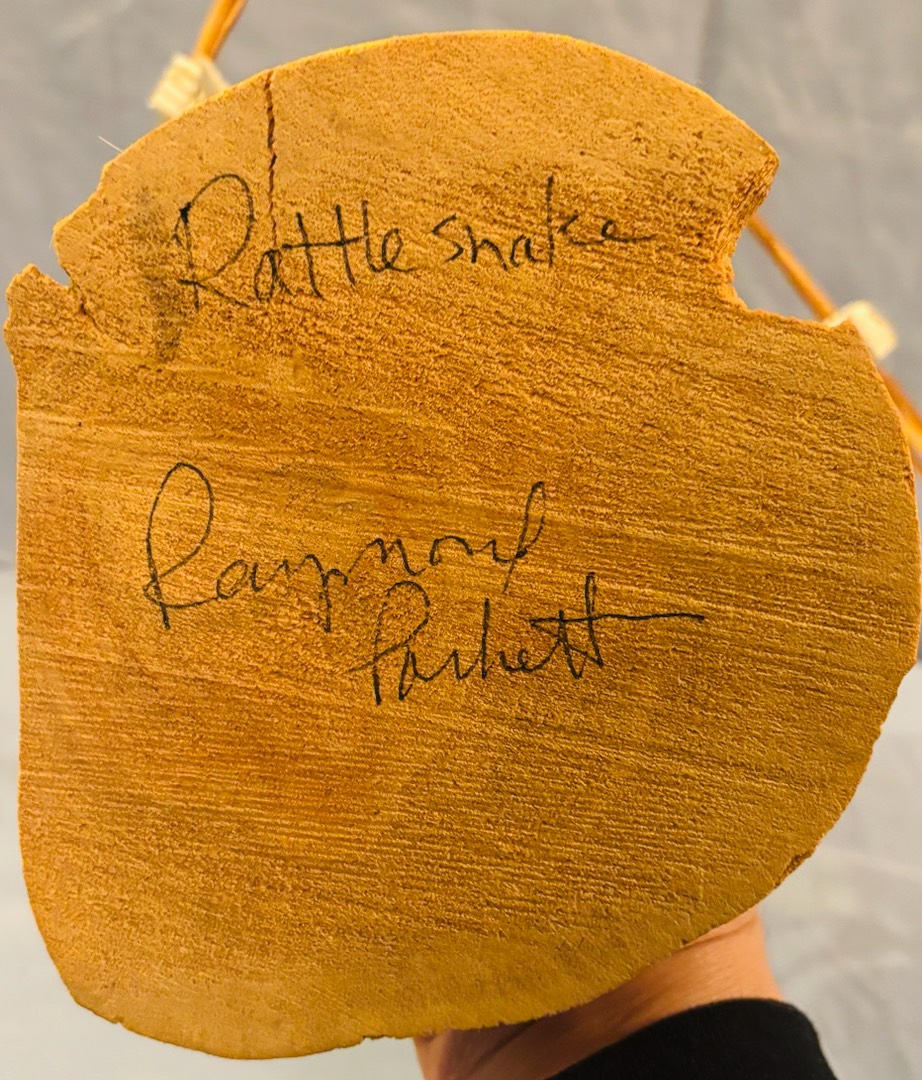 Rattle snake
Raymond
Parkett